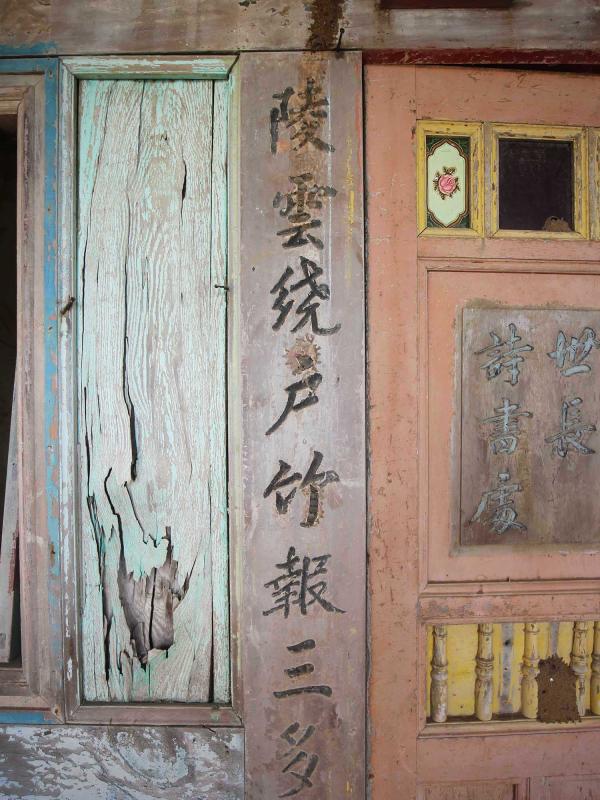 陵雲绕户竹報三多
詩書處
世長